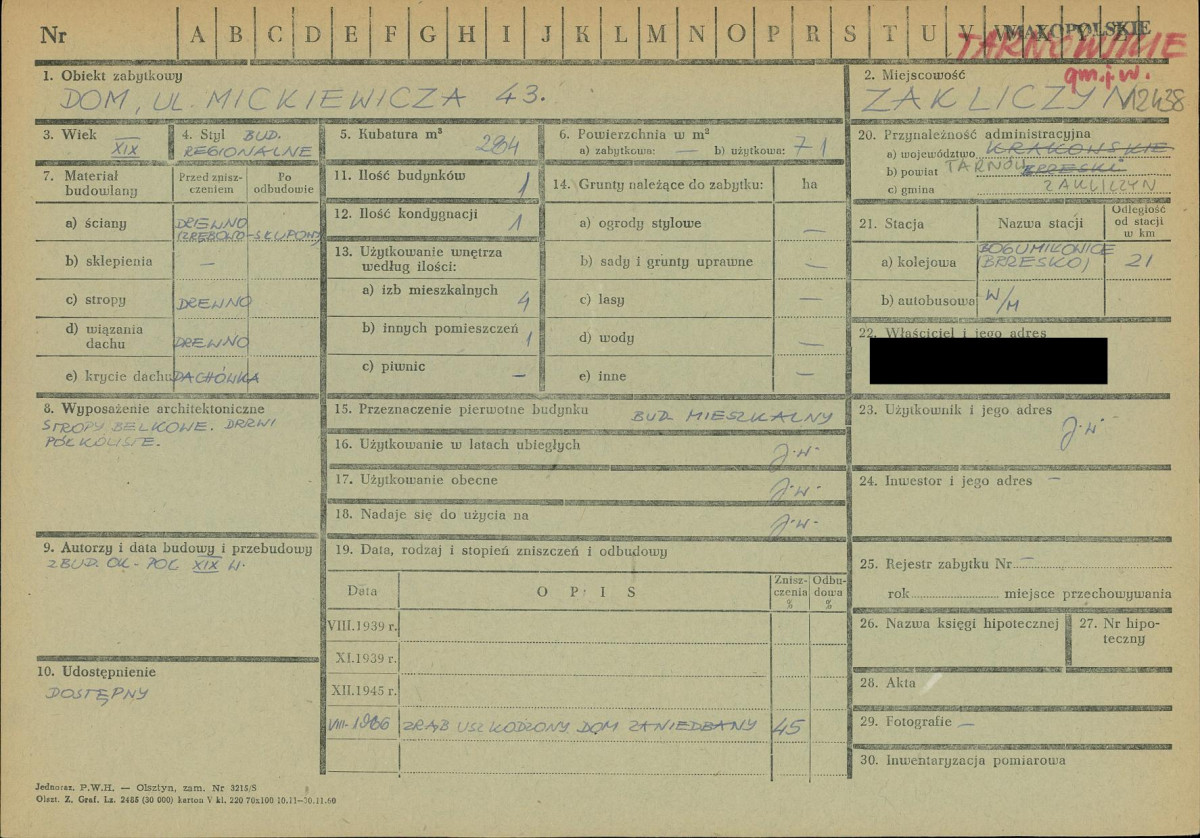 Nr A B C D E F G H I J K L M N O P R S T U V W
MAŁOPOLSKIE
TARNOWSKIE
gm. j. w.
1. Obiekt zabytkowy
DOM, UL. MICKIEWICZA 43.
2. Miejscowość
ZAKLICZYN 12438
3. Wiek
XIX
4. Styl BUD.
REGIONALNE
5. Kubatura m³
284
6. Powierzchnia w m²
a) zabytkowa: — b) użytkowa: 71
20. Przynależność administracyjna
a) województwo KRAKOWSKIE
b) powiat TARNÓW BRZESKI
c) gmina ZAKLICZYN
7. Materiał budowlany
Przed zniszczeniem
Po odbudowie
a) ściany DREWNO
ZRĘBOWO-SŁUPOWY
b) sklepienia —
c) stropy DREWNO
d) wiązania dachu DREWNO
e) krycie dachu DACHÓWKA
11. Ilość budynków 1
12. Ilość kondygnacji 1
13. Użytkowanie wnętrza według ilości:
a) izb mieszkalnych 4
b) innych pomieszczeń 1
c) piwnic —
14. Grunty należące do zabytku: ha
a) ogrody stylowe —
b) sady i grunty uprawne —
c) lasy —
d) wody —
e) inne —
21. Stacja Nazwa stacji Odległość od stacji w km
a) kolejowa BOGUMIŁOWICE
(BRZESKO) 21
b) autobusowa W/M
22. Właściciel i jego adres
8. Wyposażenie architektoniczne
STROPY BELKOWE. DRZWI
PÓŁKOLISTE.
15. Przeznaczenie pierwotne budynku BUD. MIESZKALNY
16. Użytkowanie w latach ubiegłych J.W.
17. Użytkowanie obecne J.W.
18. Nadaje się do użycia na J.W.
23. Użytkownik i jego adres
J.W.
24. Inwestor i jego adres —
9. Autorzy i data budowy i przebudowy
ZBUD. OK. POŁ XIX W.
19. Data, rodzaj i stopień zniszczeń i odbudowy
Data OPIS Zniszczenia % Odbudowa %
VIII.1939 r.
XI.1939 r.
XII.1945 r.
VIII-1966 ZRĄB USZKODZONY. DOM ZANIEDBANY 45
25. Rejestr zabytku Nr —
rok miejsce przechowywania
26. Nazwa księgi hipotecznej
27. Nr hipoteczny
10. Udostępnienie
DOSTĘPNY
28. Akta
29. Fotografie —
30. Inwentaryzacja pomiarowa
Jednoraz. P.W.H. — Olsztyn, zam. Nr 3215/S
Olszt. Z. Graf. Lz. 2485 (30 000) karton V kl. 220 70x100 10.11—30.11.60